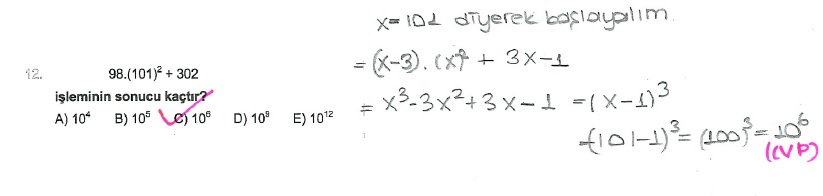 12. 98.(101)² + 302
işleminin sonucu kaçtır?
A) 10⁴ B) 10⁵ C) 10⁶ D) 10⁹ E) 10¹²
x=101 diyerek başlayalım.
= (x-3). (x)² + 3x-1
= x³-3x²+3x-1 =(x-1)³
(101-1)³= (100)³=10⁶
(CVP)